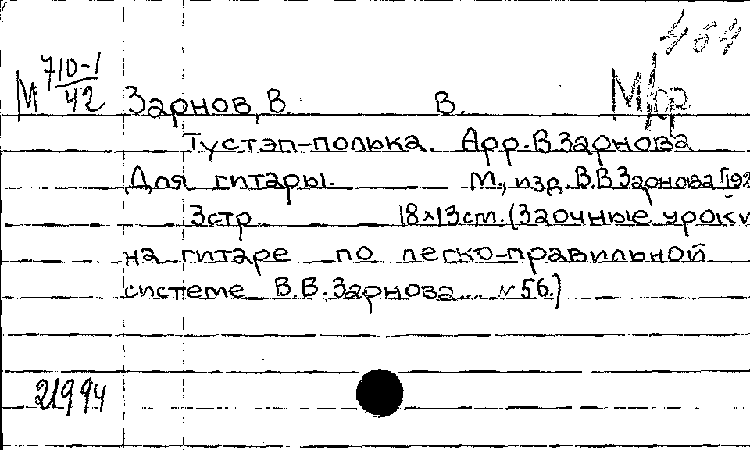 464
М 710-1/42 Зарнов, В. В. М/кр
Тустэп-полька. Арр. В Зарнова
Для гитары. М., изд. В.В Зарнова [192
3стр 18х13cm. (Заочные уроки
на гитаре по легко-правильной
системе В.В. Зарнова N 56.)
21994